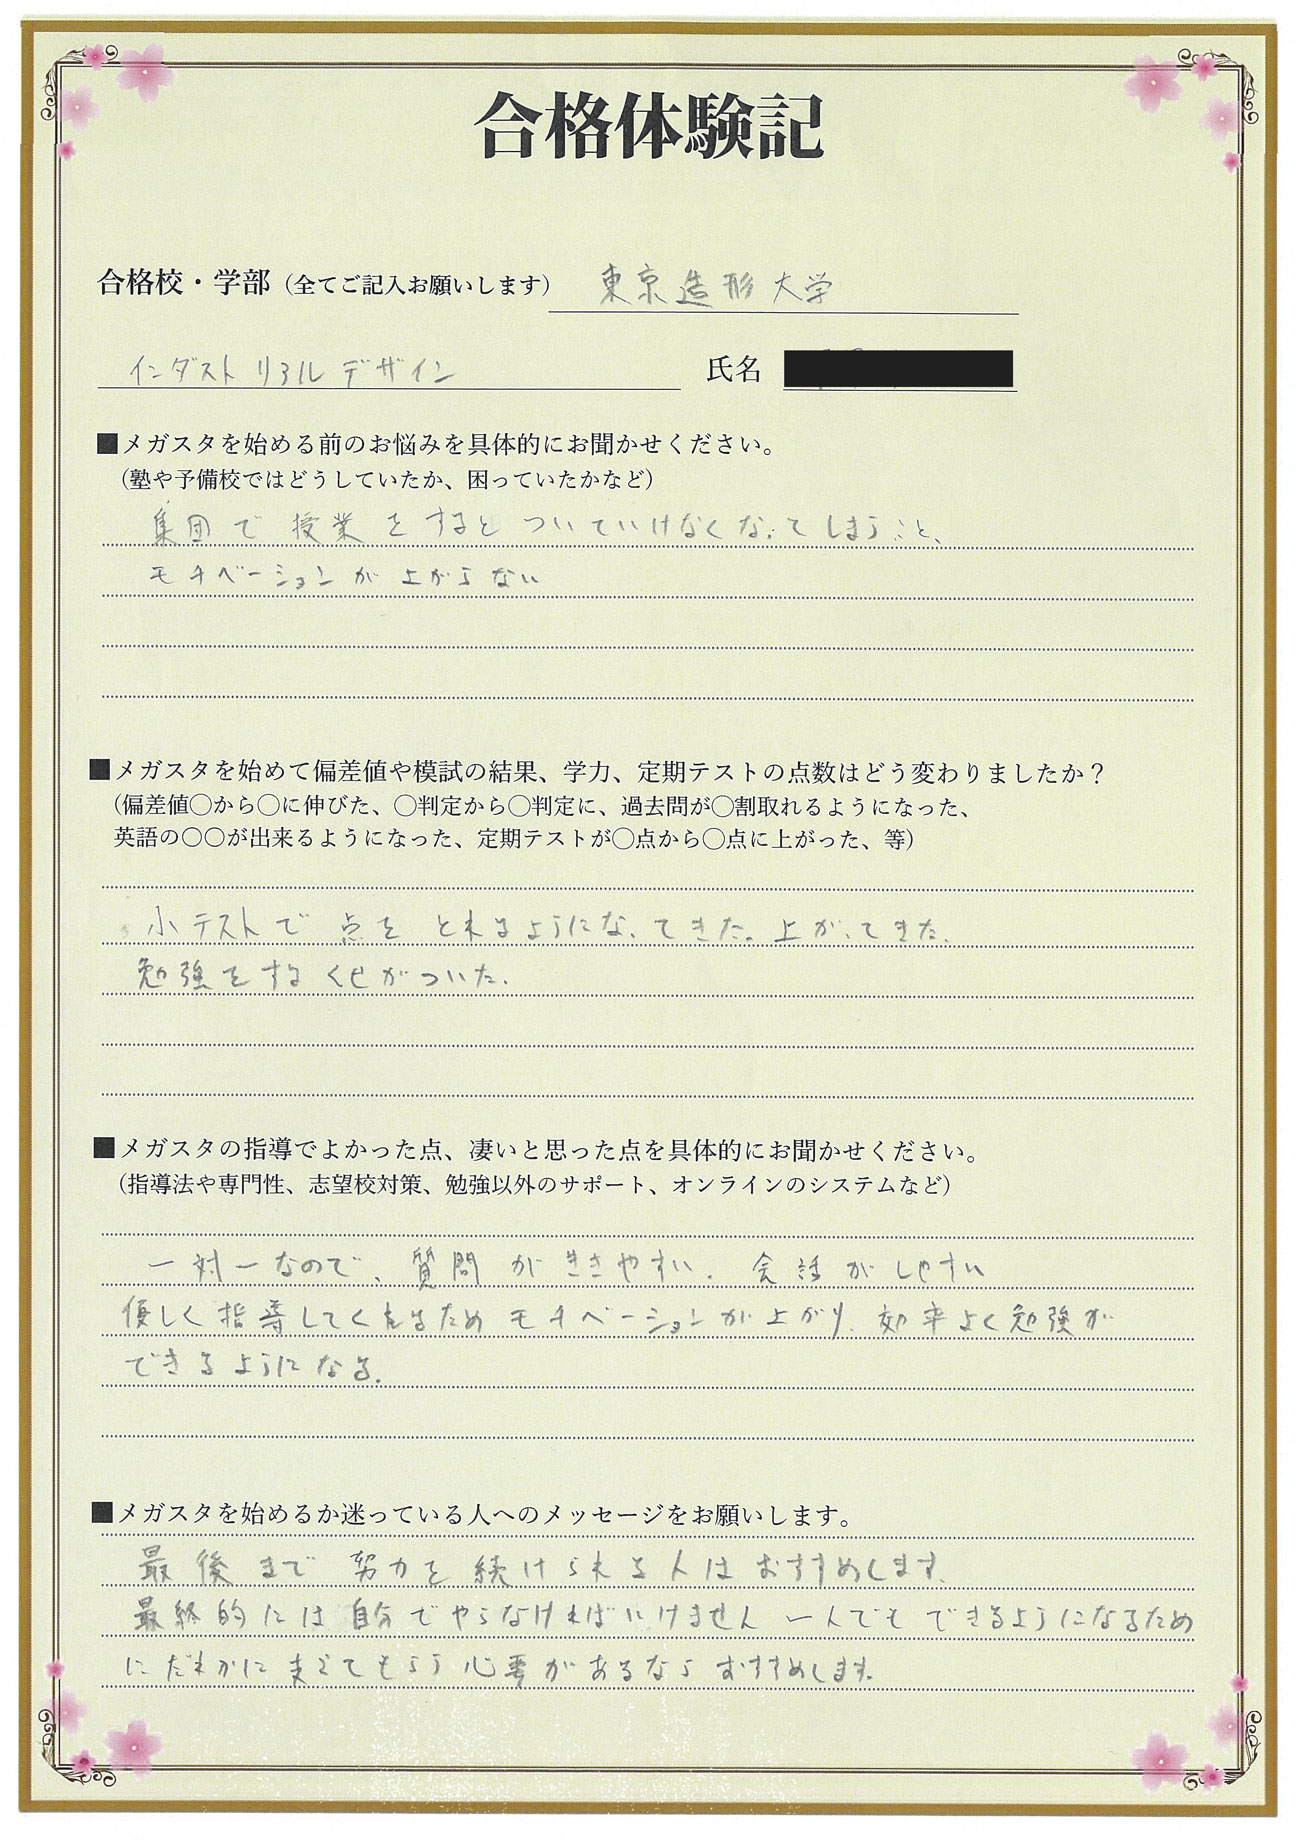 合格体験記
合格校・学部(全てご記入お願いします) 東京造形大学
インダストリアルデザイン 氏名
■メガスタを始める前のお悩みを具体的にお聞かせください。
(塾や予備校ではどうしていたか、困っていたかなど)
集団で授業をするとついていけなくなってしまうこと、
モチベーションが上がらない
■メガスタを始めて偏差値や模試の結果、学力、定期テストの点数はどう変わりましたか？
(偏差値〇から〇に伸びた、〇判定から〇判定に、過去問が〇割取れるようになった、
英語の〇〇が出来るようになった、定期テストが〇点から〇点に上がった、等)
小テストで点をとれるようになってきた。上がってきた。
勉強をするくせがついた。
■メガスタの指導でよかった点、凄いと思った点を具体的にお聞かせください。
(指導法や専門性、志望校対策、勉強以外のサポート、オンラインのシステムなど)
一対一なので、質問がききやすい。会話がしやすい
優しく指導してくれるためモチベーションが上がり、効率よく勉強が
できるようになる。
■メガスタを始めるか迷っている人へのメッセージをお願いします。
最後まで努力を続けられる人はおすすめします。
最終的には自分でやらなければいけません 一人でもできるようになるため
にだれかに支えてもらう必要があるならおすすめします。